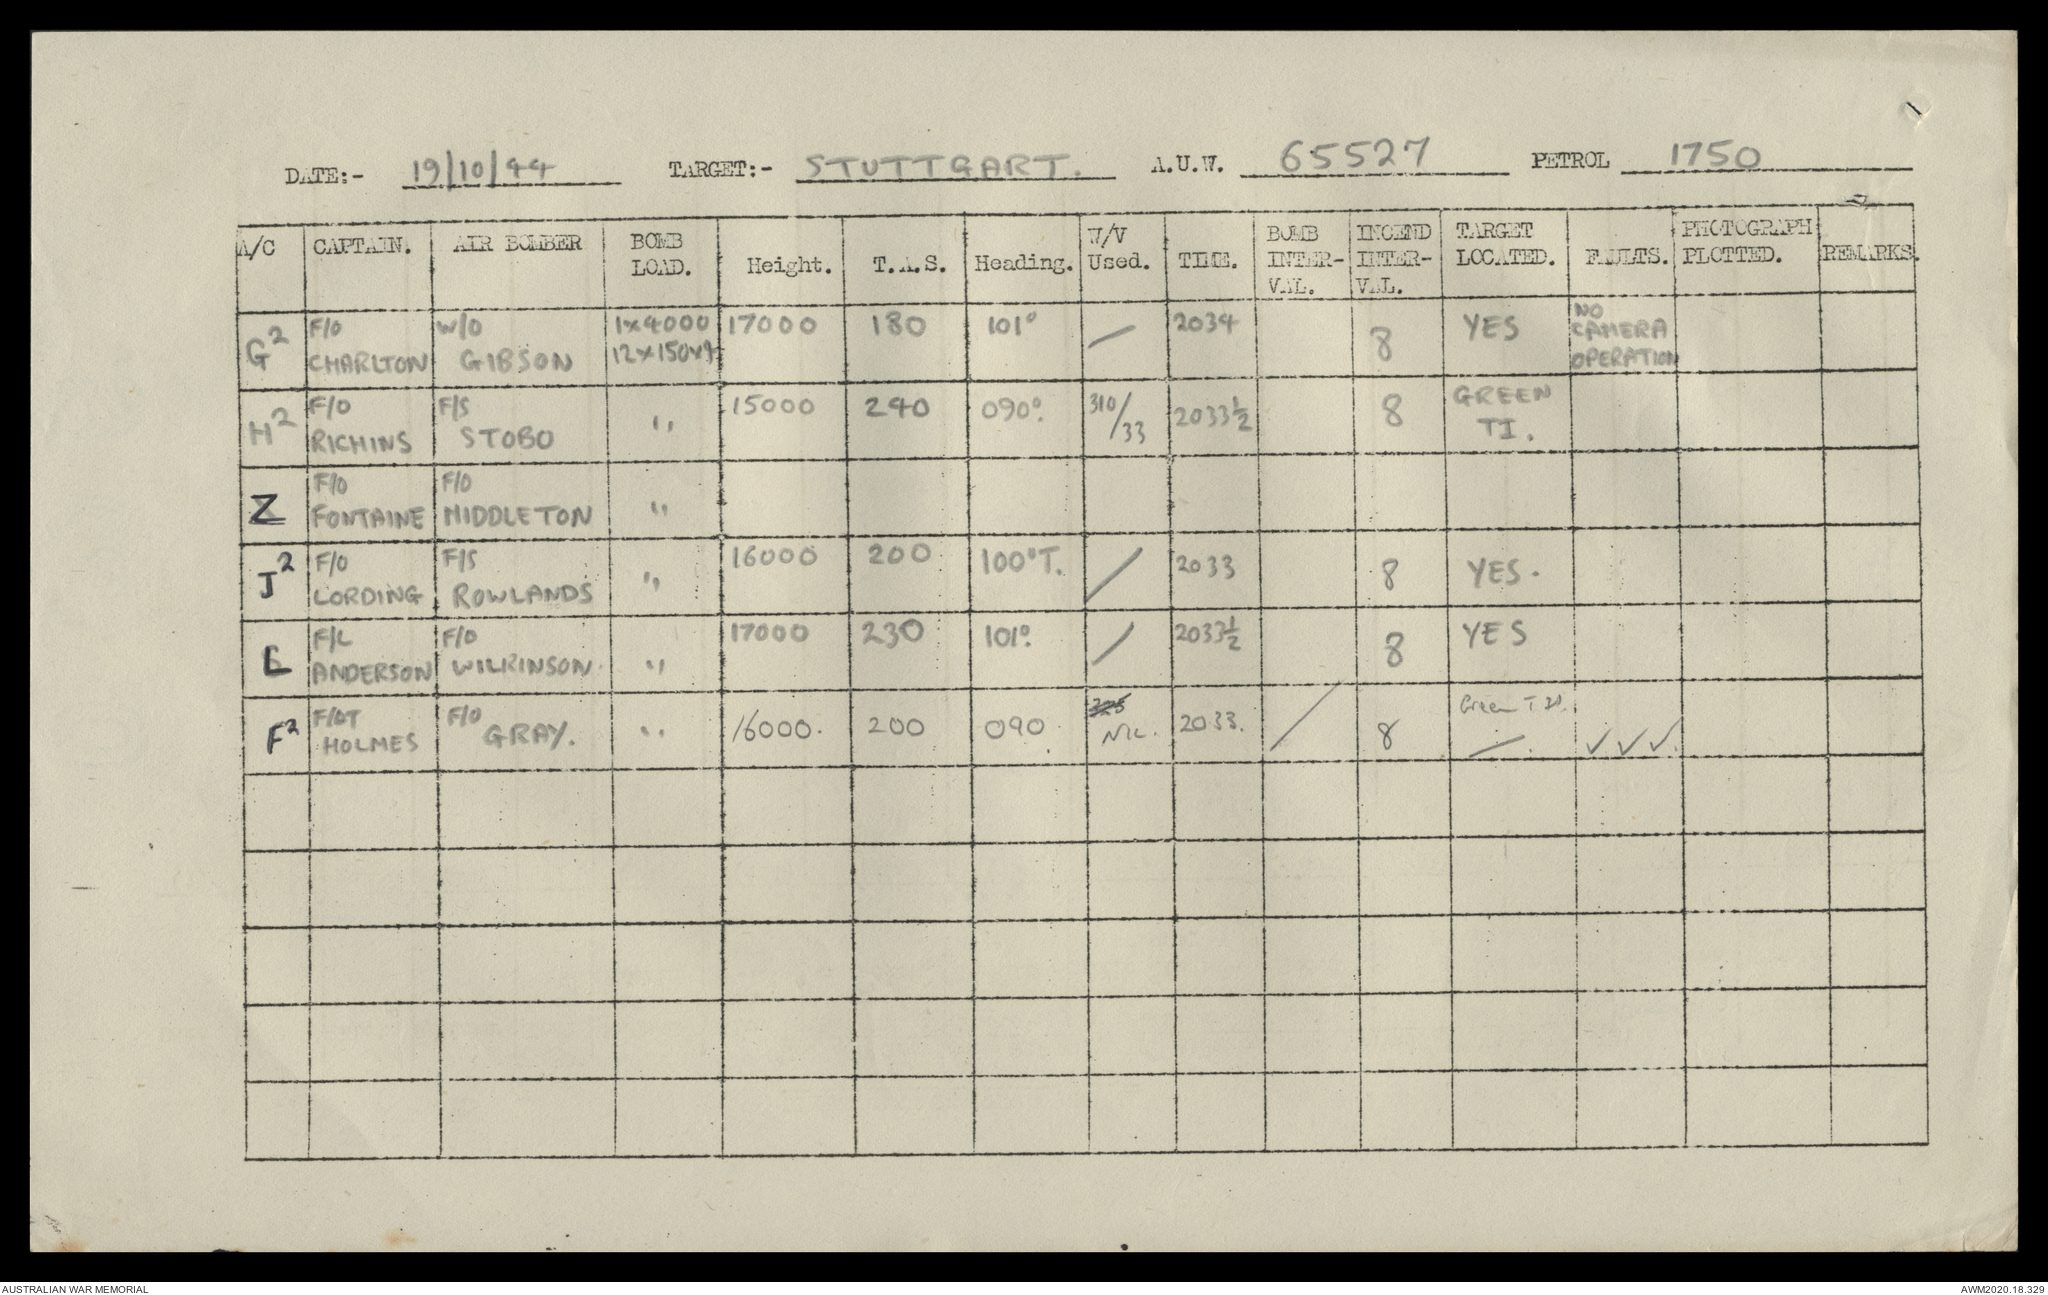 DATE:- 19/10/44 TARGET:- STUTTGART. A.U.W. 65527 PETROL 1750
A/C CAPTAIN. AIR BOMBER BOMB LOAD. Height. T.A.S. Heading. W/V Used. TIME. BOMB INTER-VAL. INCEND INTER-VAL. TARGET LOCATED. FAULTS. PHOTOGRAPH PLOTTED. REMARKS.
G2 F/O CHARLTON W/O GIBSON 1x4000 17000 180 101° / 2034 8 YES NO CAMERA OPERATION
H2 F/O RICHINS F/S STOBO " 15000 240 090°. 310/33 2033½ 8 GREEN TI.
Z F/O FONTAINE F/O MIDDLETON "
J2 F/O LORDING F/S ROWLANDS " 16000 200 100°T. / 2033 8 YES.
L F/L ANDERSON F/O WILKINSON. " 17000 230 101°. / 2033½ 8 YES
F2 F/OT HOLMES F/O GRAY. " 16000. 200 090 NIL. 2033. / 8 Green T.Is. ✓✓✓.
AUSTRALIAN WAR MEMORIAL AWM2020.18.329